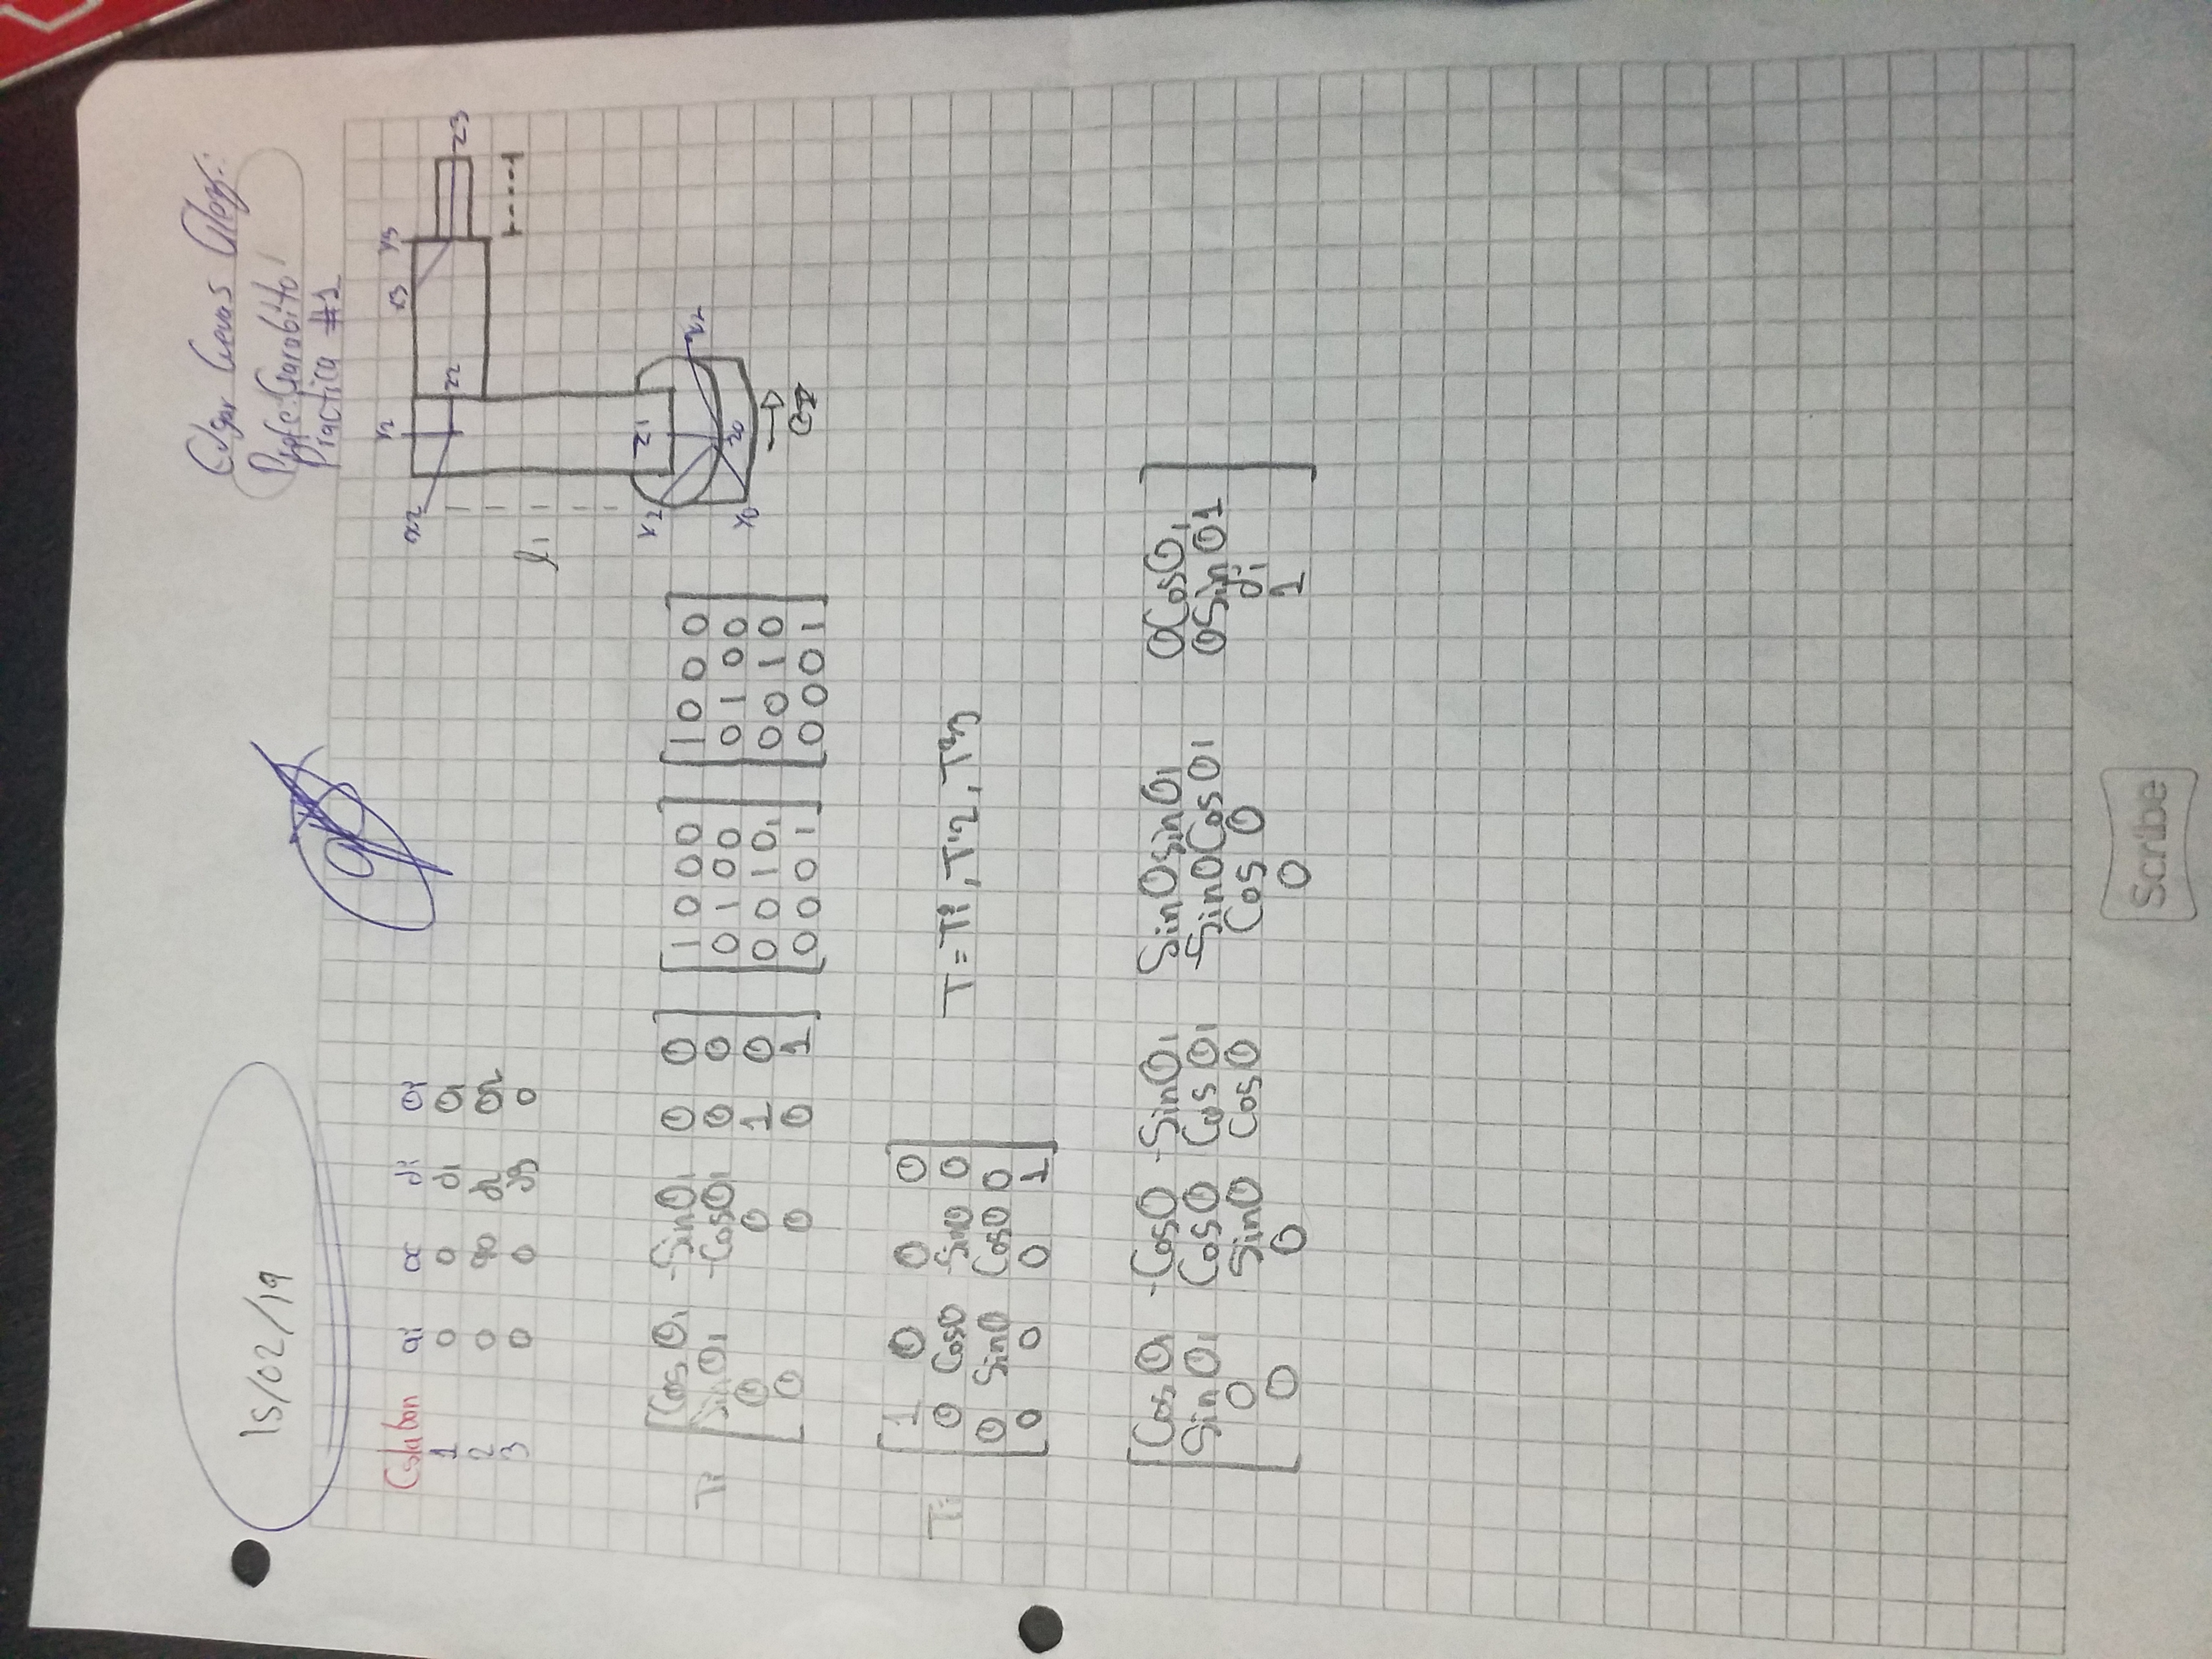 15/02/19
Edgar Cuevas Glez:
Profe: Garabito
Practica #1
Eslabon ai α di θi
1 0 0 d1 θ1
2 0 90 d2 θ2
3 0 0 d3 0
x2 Y2 z2 x3 Y3 z3
l1
z1
z0
Y0
Ti [Cos θ1 -Sin θ1 0 0] [1 0 0 0] [1 0 0 0]
Sin θ1 -Cos θ1 0 0 0 1 0 0 0 1 0 0
0 0 1 0 0 0 1 0, 0 0 1 0
0 0 0 1 0 0 0 1 0 0 0 1
[1 0 0 0]
Ti= 0 Cosθ -Sinθ 0 T = T⁰1, T¹2, T²3
0 Sinθ Cosθ 0
0 0 0 1
[Cos θ1 -Cosθ -Sinθ1 Sinθsinθ1 0Cosθ1]
Sin θ1 Cosθ Cosθ1 -SinθCosθ1 0Sinθ1
0 Sinθ Cosθ Cos θ di
0 0 0 1
Scribe